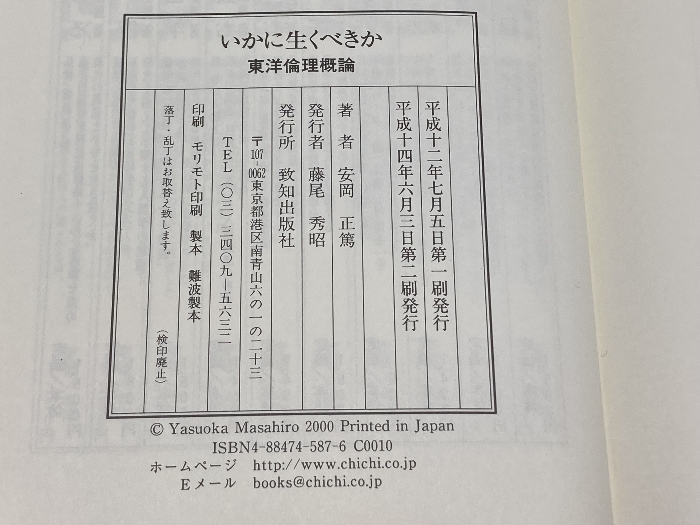 いかに生くべきか
東洋倫理概論
平成十二年七月五日第一刷発行
平成十四年六月三日第二刷発行
著者 安岡 正篤
発行者 藤尾 秀昭
発行所 致知出版社
〒107-0062 東京都港区南青山六の一の二十三
TEL(〇三)三四〇九―五六三二
印刷 モリモト印刷 製本 難波製本
落丁・乱丁はお取替え致します。 (検印廃止)
© Yasuoka Masahiro 2000 Printed in Japan
ISBN4-88474-587-6 C0010
ホームページ http://www.chichi.co.jp
Eメール books@chichi.co.jp